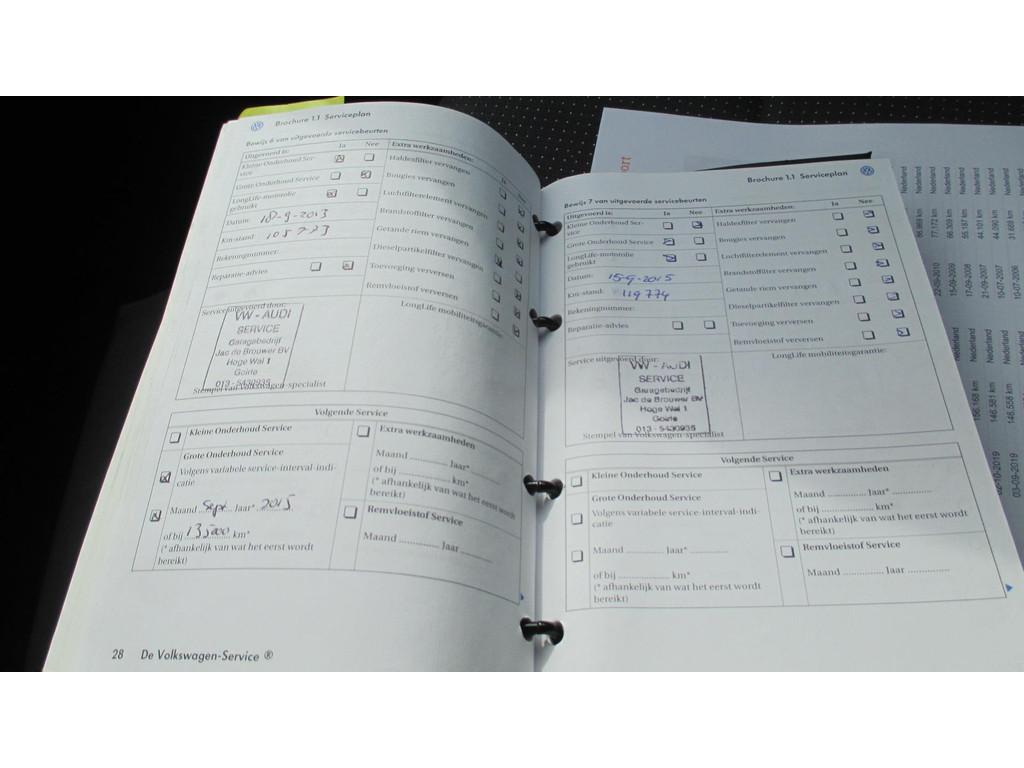 Brochure 1.1 Serviceplan
Bewijs 6 van uitgevoerde servicebeurten
Uitgevoerd is: Ja Nee
Kleine Onderhoud Ser-
vice
Grote Onderhoud Service
LongLife-motorolie
gebruikt
Datum: 18-9-2013
Km-stand: 105723
Rekeningnummer:
Reparatie-advies
Extra werkzaamheden: Ja
Haldexfilter vervangen
Bougies vervangen
Luchtfilterelement vervangen
Brandstoffilter vervangen
Getande riem vervangen
Dieselpartikelfilter vervangen
Toevoeging verversen
Remvloeistof verversen
Service uitgevoerd door:
VW - AUDI
SERVICE
Garagebedrijf
Jac de Brouwer BV
Hoge Wal 1
Goirle
013 - 5430935
Stempel van Volkswagen-specialist
LongLife mobiliteitsgarantie:
Volgende Service
Kleine Onderhoud Service
Grote Onderhoud Service
Volgens variabele service-interval-indi-
catie
Maand Sept Jaar* 2015
of bij 135000 km*
(* afhankelijk van wat het eerst wordt
bereikt)
Extra werkzaamheden
Maand ............ Jaar* ............
of bij ............ km*
(* afhankelijk van wat het eerst wordt
bereikt)
Remvloeistof Service
Maand ............ Jaar ............
28 De Volkswagen-Service ®
Brochure 1.1 Serviceplan
Bewijs 7 van uitgevoerde servicebeurten
Uitgevoerd is: Ja Nee
Kleine Onderhoud Ser-
vice
Grote Onderhoud Service
LongLife-motorolie
gebruikt
Datum: 15-9-2015
Km-stand: 119774
Rekeningnummer:
Reparatie-advies
Extra werkzaamheden: Ja Nee
Haldexfilter vervangen
Bougies vervangen
Luchtfilterelement vervangen
Brandstoffilter vervangen
Getande riem vervangen
Dieselpartikelfilter vervangen
Toevoeging verversen
Remvloeistof verversen
Service uitgevoerd door:
VW - AUDI
SERVICE
Garagebedrijf
Jac de Brouwer BV
Hoge Wal 1
Goirle
013 - 5430935
Stempel van Volkswagen-specialist
LongLife mobiliteitsgarantie:
Volgende Service
Kleine Onderhoud Service
Grote Onderhoud Service
Volgens variabele service-interval-indi-
catie
Maand ............ Jaar* ............
of bij ............ km*
(* afhankelijk van wat het eerst wordt
bereikt)
Extra werkzaamheden
Maand ............ Jaar* ............
of bij ............ km*
(* afhankelijk van wat het eerst wordt
bereikt)
Remvloeistof Service
Maand ............ Jaar ............
ort
22-09-2010 77.172 km Nederland
15-09-2009 66.309 km Nederland
27-09-2008 55.187 km Nederland
21-09-2007 44.101 km Nederland
10-07-2007 44.090 km Nederland
10-07-2006 31.688 km Nederland
156.168 km Nederland
146.581 km Nederland
03-09-2019 146.558 km Nederland